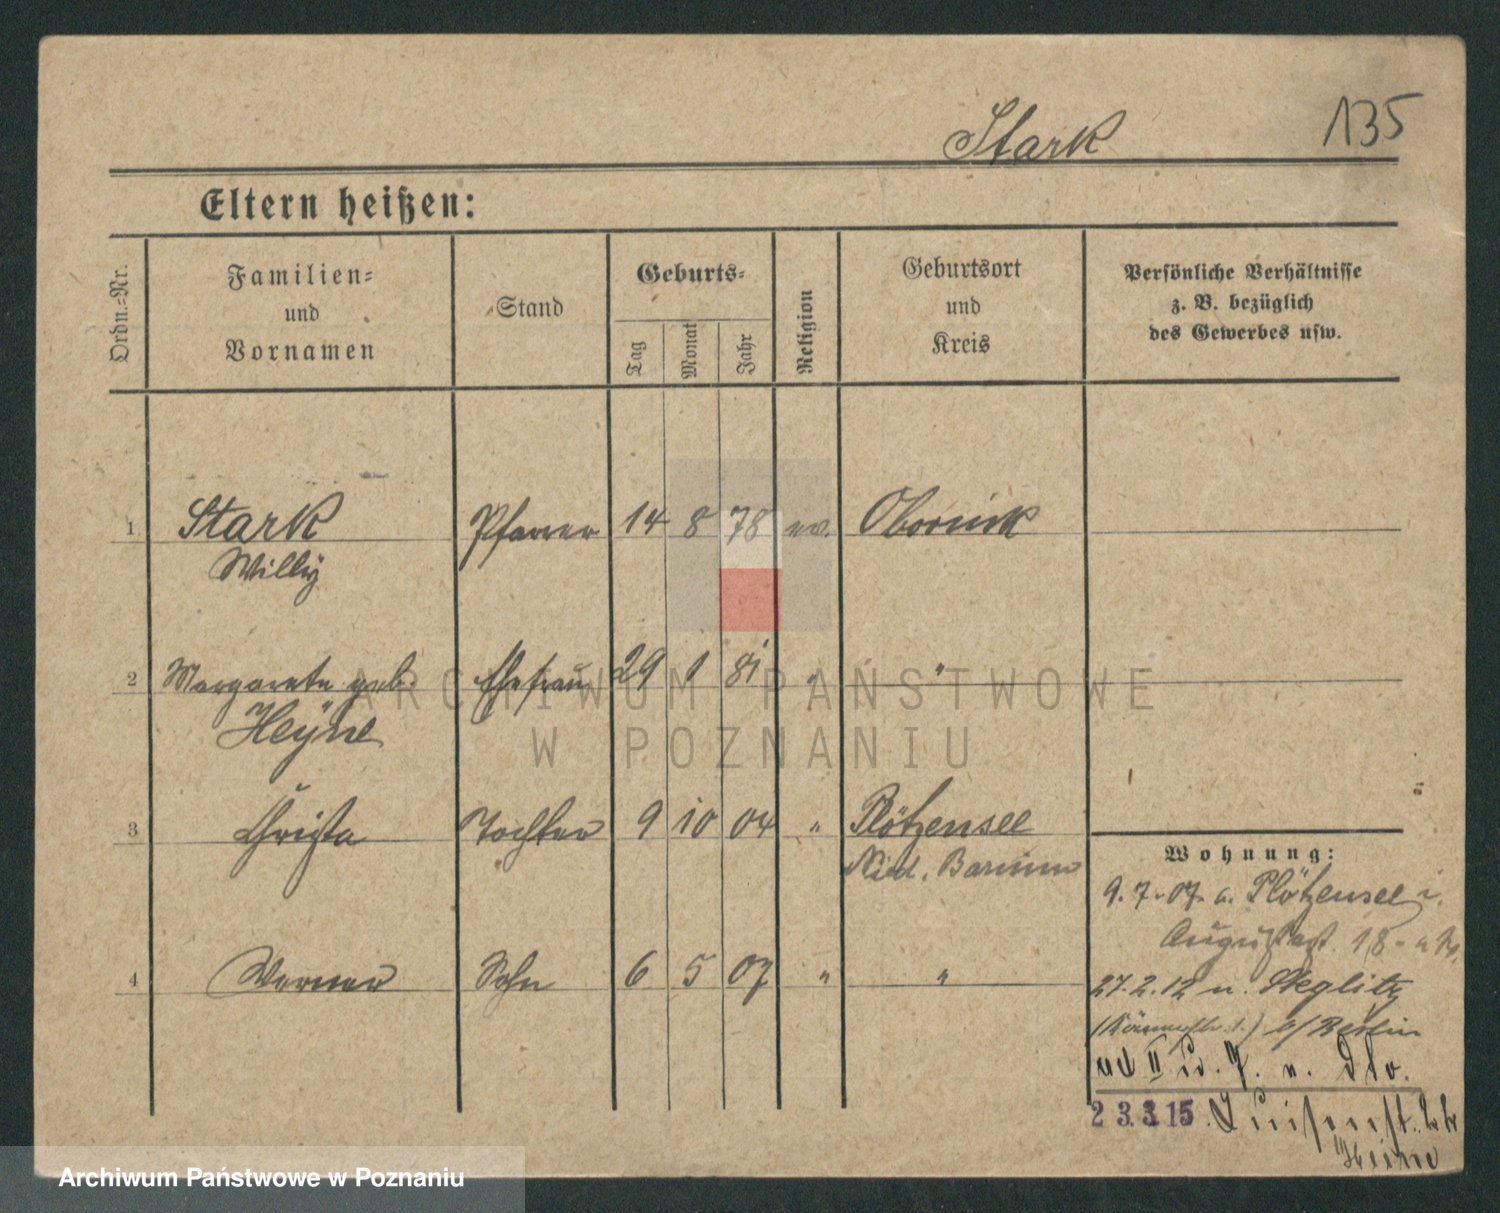 Stark 135
Eltern heißen:
Ordn.=Nr.
Familien=
und
Vornamen
Stand
Geburts=
Tag
Monat
Jahr
Religion
Geburtsort
und
Kreis
Persönliche Verhältnisse
z. B. bezüglich
des Gewerbes usw.
1 Stark Pfarrer 14 8 78 ev. Obornik
Willy
2 Margarete geb. Ehefrau 29 1 81 " "
Heyne
3 Christa Tochter 9 10 04 " Plötzensee
Nied. Barnim
4 Werner Sohn 6 5 07 " "
Wohnung:
9.7.07 a. Plötzensee i.
Augustast. 18
27.2.12 n. Steglitz
b/Berlin
II
23.3.15
Heine
ARCHIWUM PAŃSTWOWE
W POZNANIU
Archiwum Państwowe w Poznaniu